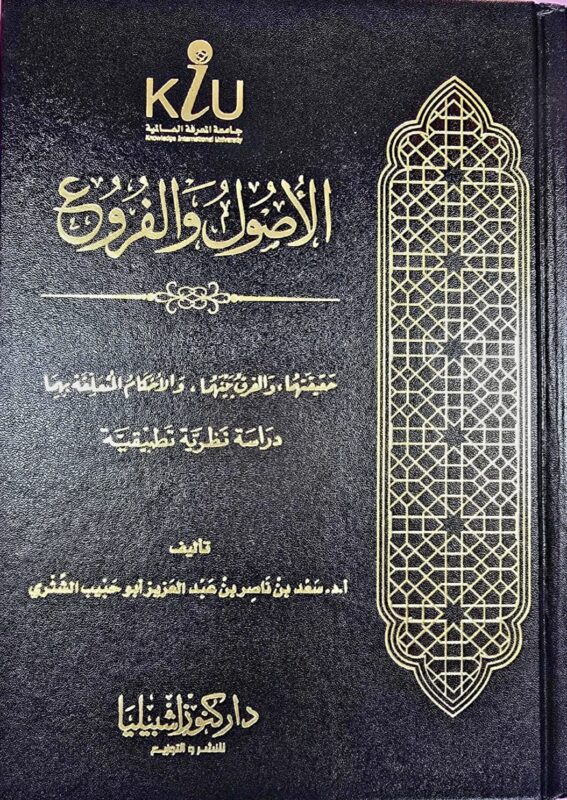 KiU
جامعة المعرفة العالمية
Knowledge International University
الأُصُولُ وَالفُرُوعُ
حَقِيقَتُهُمَا، وَالفَرقُ بَيْنَهُمَا، وَالأَحْكَامُ المُتَعَلِّقَةُ بِهِمَا
دِرَاسَة نَظَرِيَّة تَطْبِيقِيَّة
تأليف
أ.د. سَعْد بن نَاصِر بن عَبْد العَزِيز أبو حَبِيب الشَّثْرِي
دار كنوز إشبيليا
للنشر و التوزيع